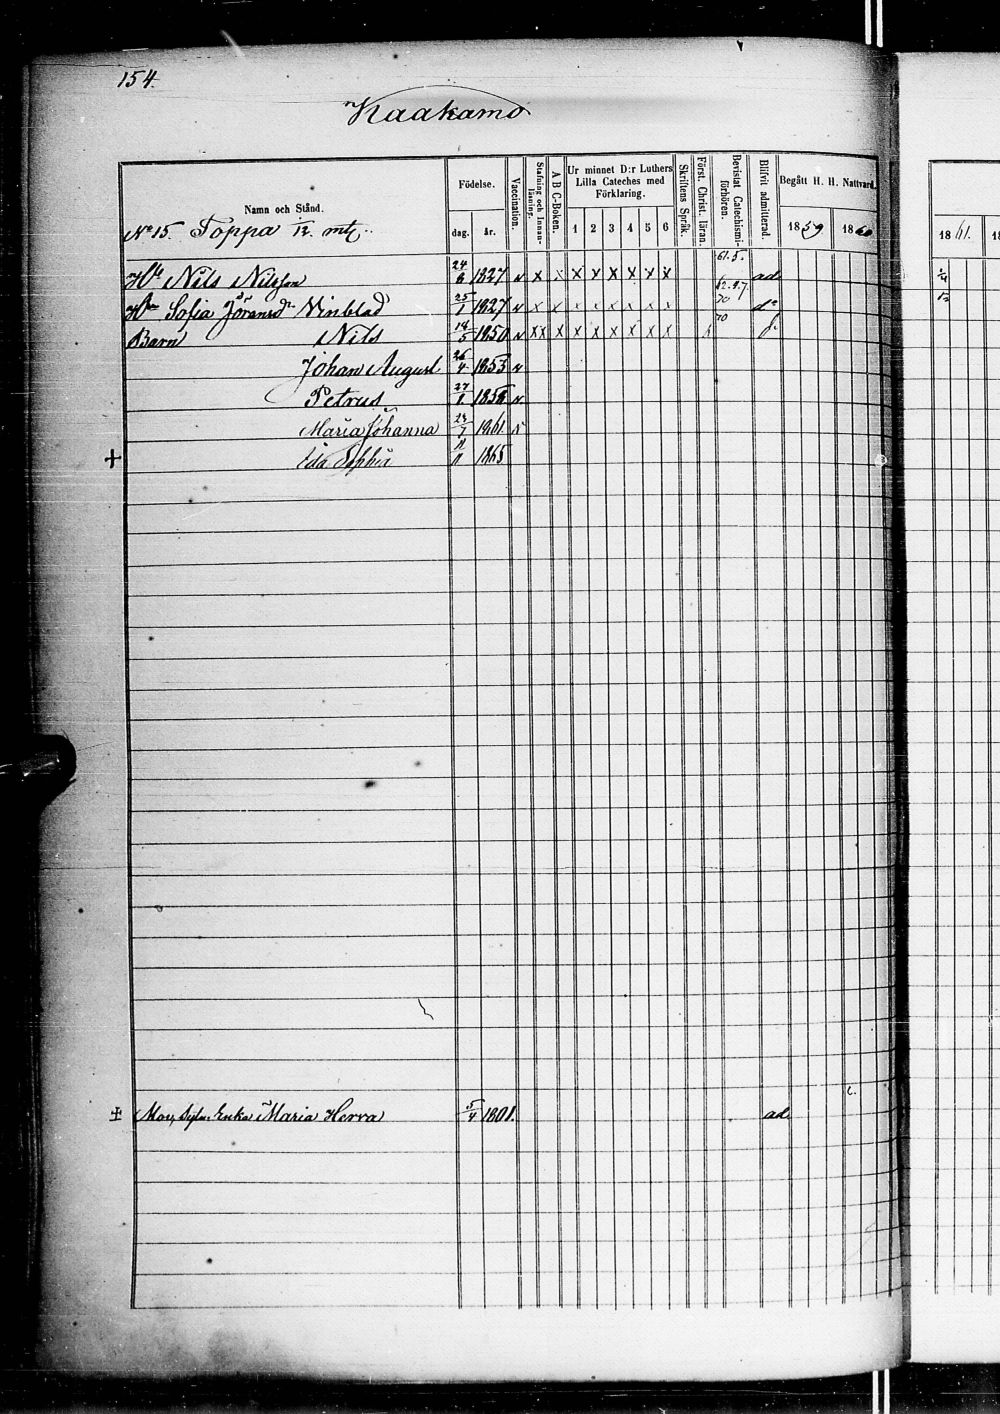 154.
Kaakamo
Namn och Stånd.
Födelse.
dag. år.
Vaccination.
Stafning och Innanläsning.
A B C-Boken.
Ur minnet D:r Luthers Lilla Cateches med Förklaring.
1 2 3 4 5 6
Skriftens Språk.
Först. Christ. läran.
Bevistat Catechismiförhören.
Blifvit admitterad.
Begått H. H. Nattvard.
1859 1860
1861. 18
No 15. Toppa 1/12 mtl.
61.5.
Nils Nilsson 24/6 1827 v x x x x x x x x 62.67. ad
Sofia Joransdr Vinblad 25/1 1827 v x x x x x x x x 70 do
Barn Nils 14/5 1850 v xx x x x x x x x 70
Johan August 26/4 1853 v
Petrus 27/6 1858 v
Maria Johanna 23/7 1961 v
+ Ida Sophia 11/11 1865
+ Mor, Enka Maria Herva 5/4 1801. ad.